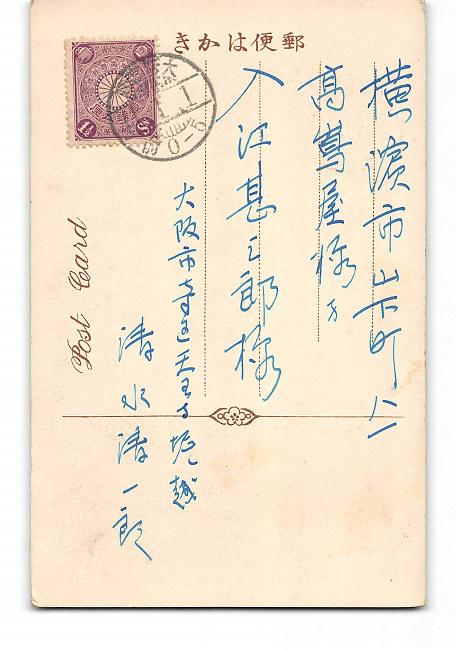 郵便はかき
横濱市山下町八一
高嶌屋様方
入江甚三郎様
大阪市 天王寺堀越
清水清一郎
Post Card
1½ Sn.